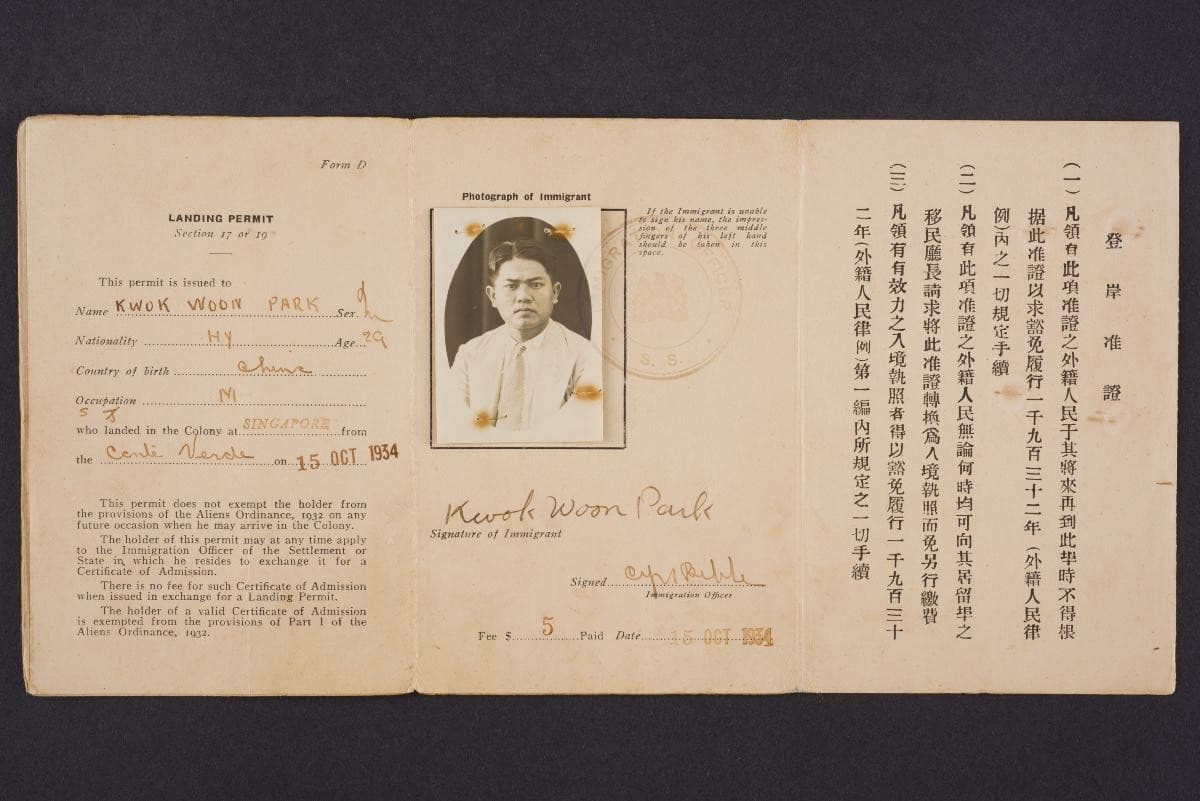 Form D
LANDING PERMIT
Section 17 or 19
This permit is issued to
Name KWOK WOON PARK Sex M
Nationality HY Age 29
Country of birth China
Occupation M
S
who landed in the Colony at SINGAPORE from
the Conte Verde on 15 OCT 1934
This permit does not exempt the holder from
the provisions of the Aliens Ordinance, 1932 on any
future occasion when he may arrive in the Colony.
The holder of this permit may at any time apply
to the Immigration Officer of the Settlement or
State in which he resides to exchange it for a
Certificate of Admission.
There is no fee for such Certificate of Admission
when issued in exchange for a Landing Permit.
The holder of a valid Certificate of Admission
is exempted from the provisions of Part I of the
Aliens Ordinance, 1932.
Photograph of Immigrant
If the Immigrant is unable
to sign his name, the impres-
sion of the three middle
fingers of his left hand
should be taken in this
space.
S. S.
Kwok Woon Park
Signature of Immigrant
Signed
Immigration Officer
Fee $ 5 Paid Date 15 OCT 1934
登岸准證
(一)凡領有此項准證之外籍人民于其將來再到此埠時不得根
据此准證以求豁免履行一千九百三十二年(外籍人民律
例)內之一切規定手續
(二)凡領有此項准證之外籍人民無論何時均可向其居留埠之
移民廳長請求將此准證轉換為入境執照而免另行繳費
(三)凡領有有效力之入境執照者得以豁免履行一千九百三十
二年(外籍人民律例)第一編內所規定之一切手續